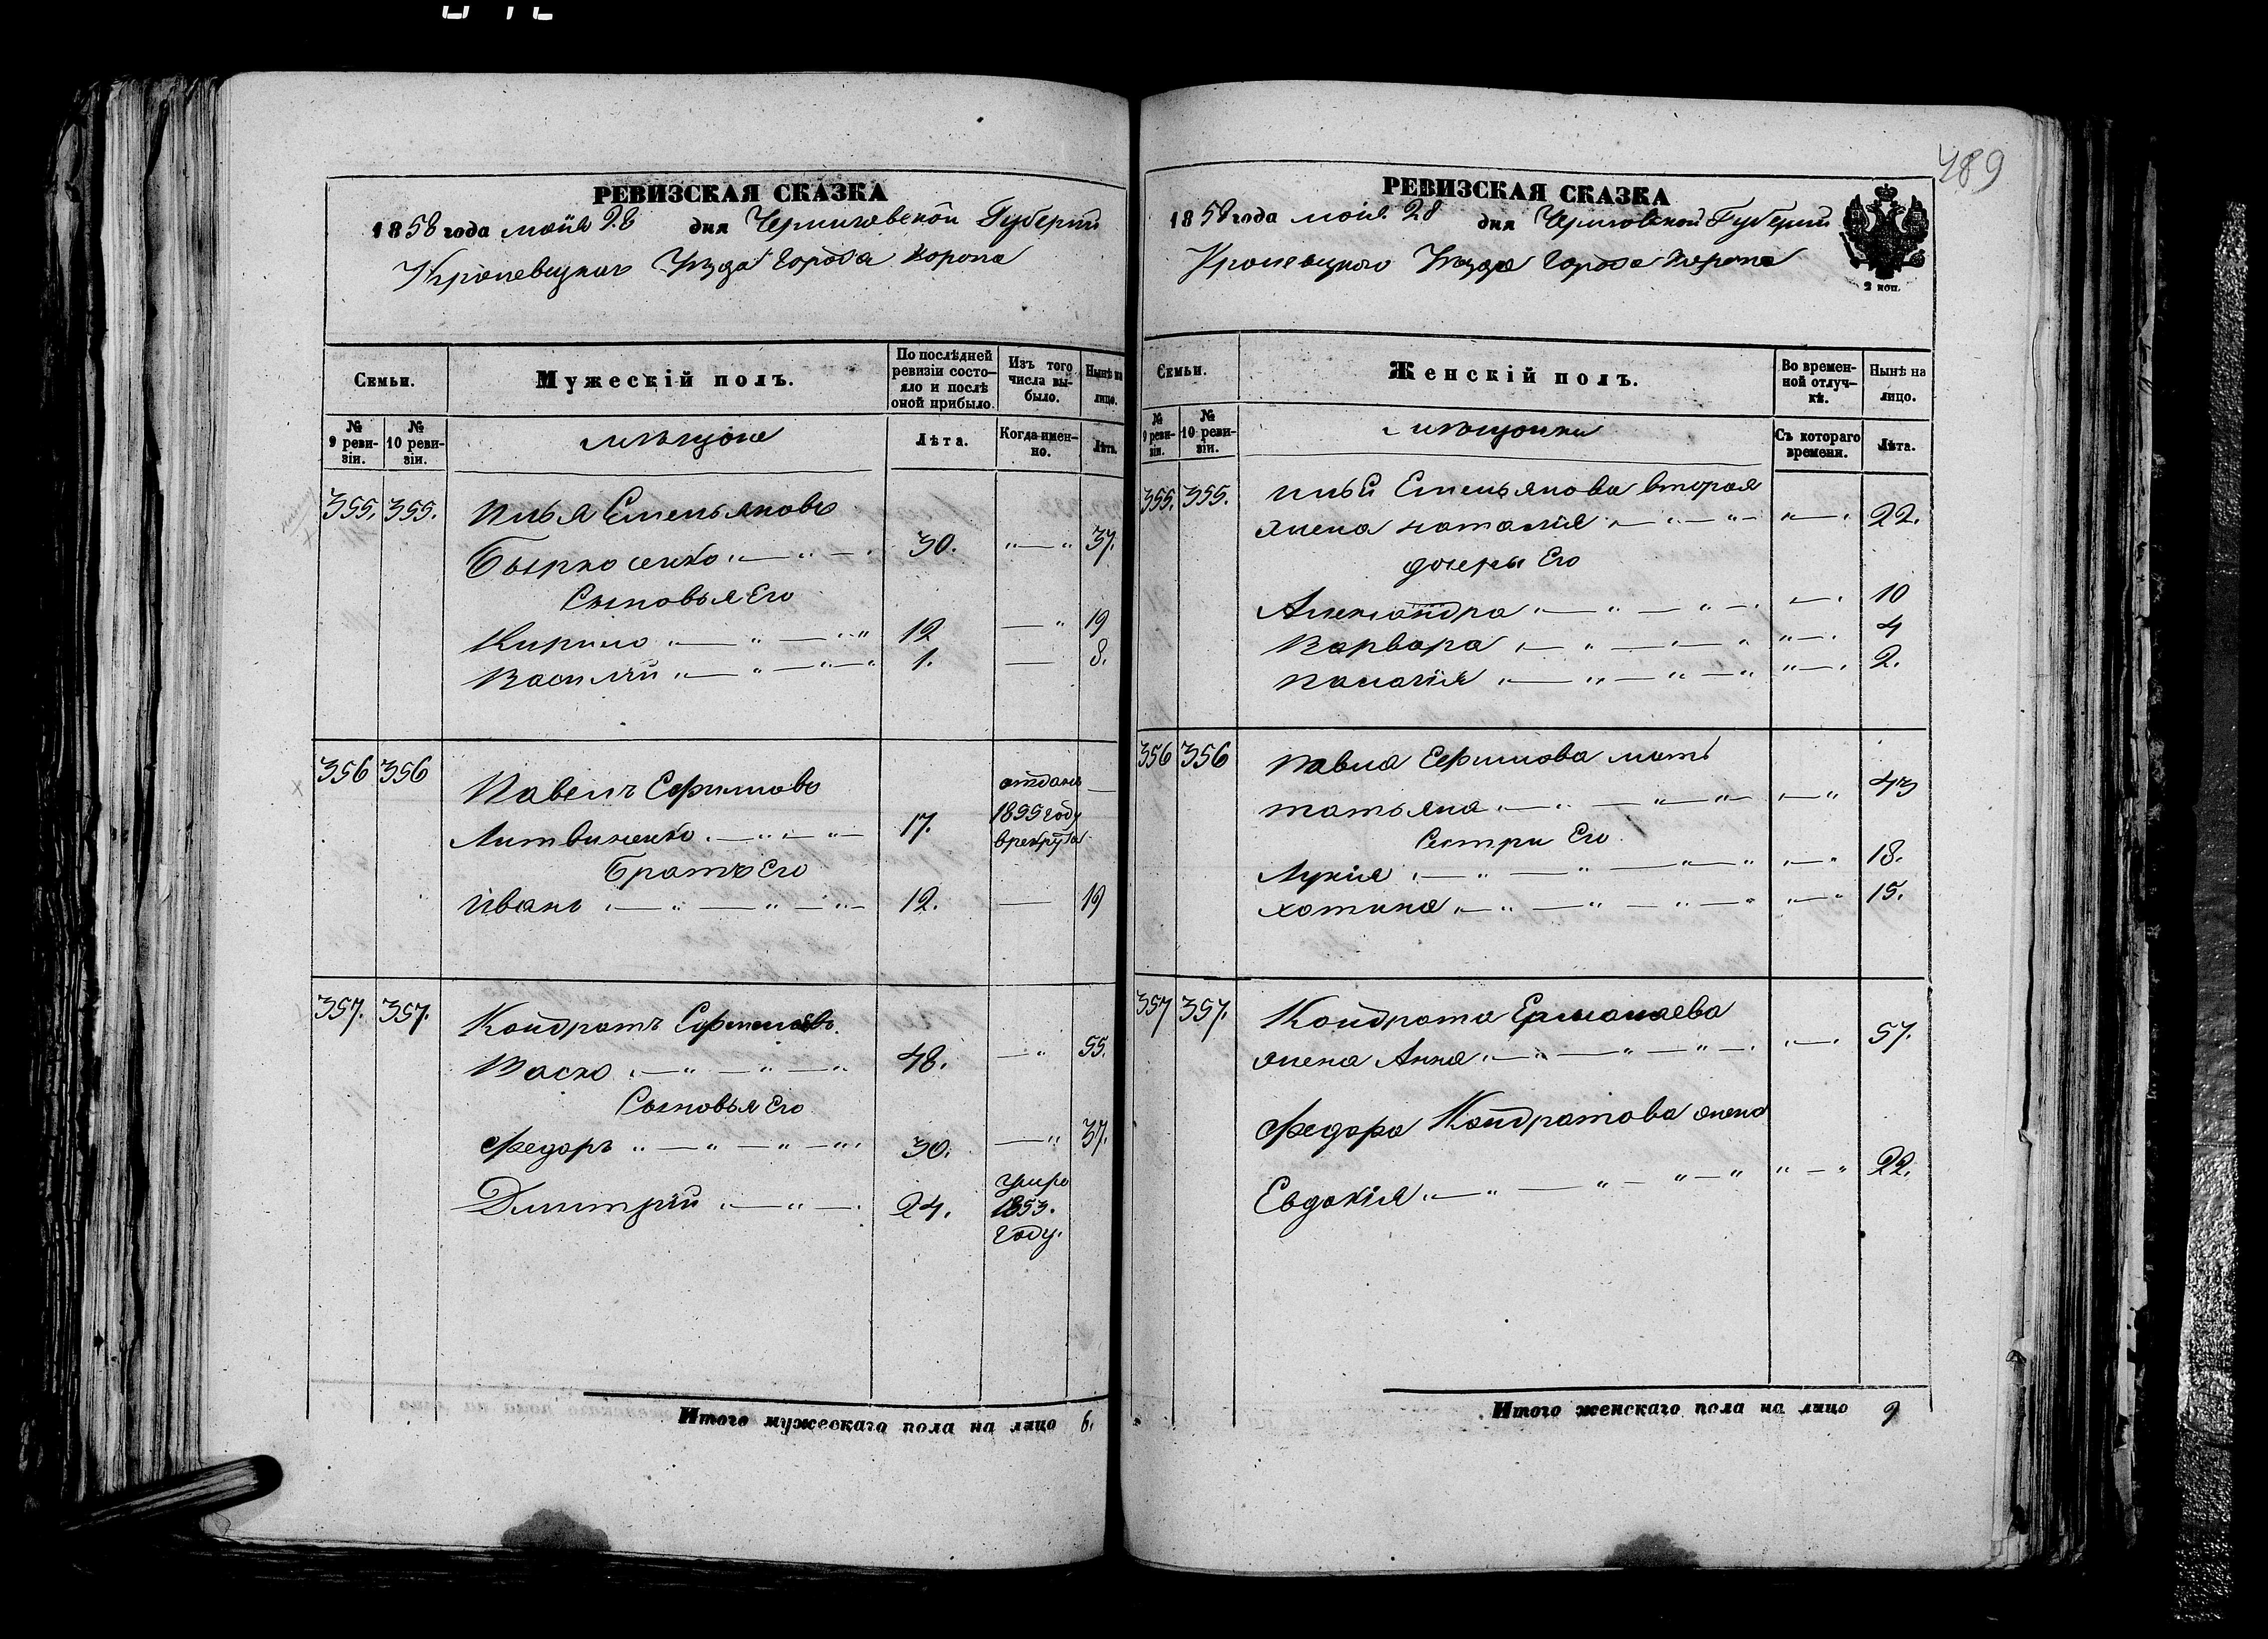 489
РЕВИЗСКАЯ СКАЗКА
1858 года мая 28 дня Черниговской Губерніи
Кролевецкаго Уезда Города Коропа
Семьи.
Мужескій полъ.
По послѣдней ревизіи состояло и послѣ оной прибыло.
Изъ того числа выбыло.
Нынѣ на лицо.
№ 9 ревизіи.
№ 10 ревизіи.
мѣщане
Лѣта.
Когда именно.
Лѣта.
355. 355. Илья Емельяновъ
30. 37.
Сыновья Его
Кирило 12 19
Василій 1. 8.
356 356 Павелъ Ефимовъ отданъ
Литвиненко 17. 1855 году
врекрута
Братъ Его
Иванъ 12. 19
357. 357. Кондратъ
Васко 48. 55.
Сыновья Его
Федоръ 30. 37.
Димитрій 24. умре
1853.
Году.
Итого мужескаго пола на лицо 6.
РЕВИЗСКАЯ СКАЗКА
1858 года мая 28 дня Черниговской Губерніи
Кролевецкаго Уезда Города Коропа
2 коп.
Семьи.
Женскій полъ.
Во временной отлучкѣ.
Нынѣ на лицо.
№ 9 ревизіи.
№ 10 ревизіи.
мѣщанки
Съ котораго времени.
Лѣта.
355. 355. Ильи Емельянова вторая
жена наталія 22.
дочеры Его
Александра 10
Варвара 4
Палагія 2.
356 356 Павла Ефимова мать
татьяна 43
Сестри Его
Лукія 18.
хотина 15.
357 357. Кондрата
жена Анна 57.
Федора Кондратова жена
Евдокія 22.
Итого женскаго пола на лицо 9